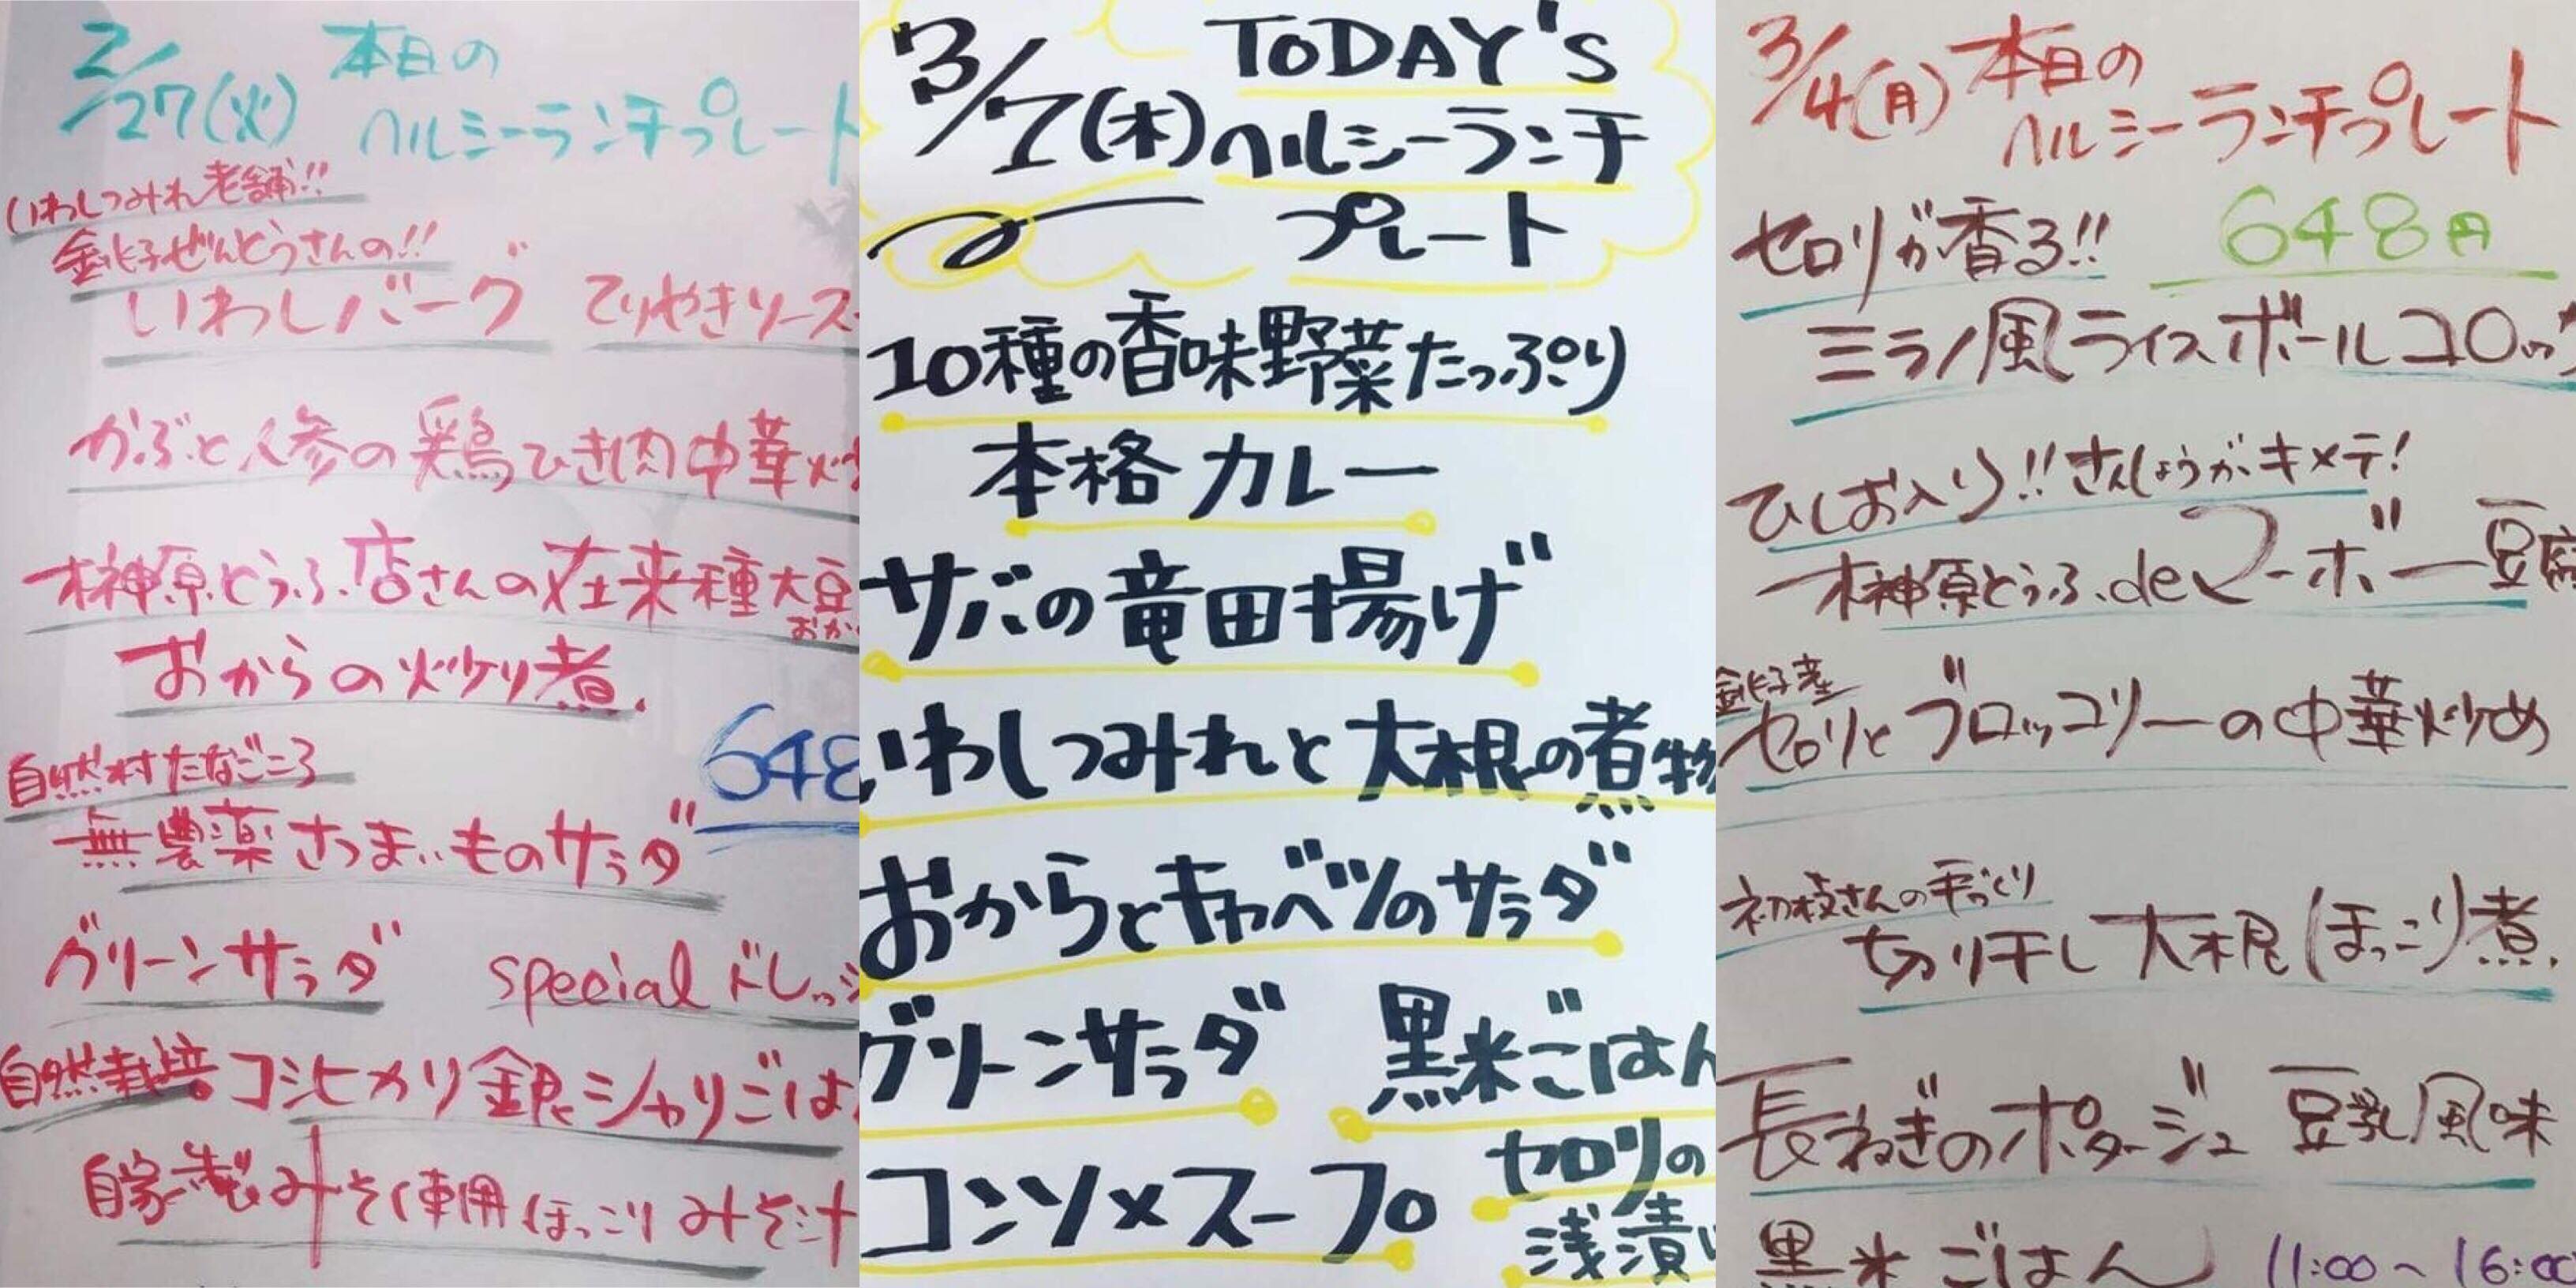 2/27(火) 本日の
ヘルシーランチプレート
いわしつみれ老舗!!
銚子ぜんどうさんの!!
いわしバーグ てりやきソース
かぶと人参の鶏ひき肉中華炒
榊原とうふ店さんの在来種大豆
おか
おからの炒り煮.
648
自然村たなごころ
無農薬さつまいものサラダ
グリーンサラダ special ドレッシ
自然栽培コシヒカリ銀シャリごは
自家製みそ使用ほっこりみそ汁
3/7(木) TODAY's
ヘルシーランチ
プレート
10種の香味野菜たっぷり
本格カレー
サバの竜田揚げ
いわしつみれと大根の煮物
おからとキャベツのサラダ
グリーンサラダ 黒米ごはん
コンソメスープ セロリの
浅漬い
3/4(月) 本日の
ヘルシーランチプレート
セロリが香る!! 648円
ミラノ風ライスボールコロッケ
ひしお入り!!さんしょうがキメテ!
榊原とうふ.deマーボー豆腐
銚子産
セロリとブロッコリーの中華炒め
初枝さんの手づくり
切り干し大根ほっこり煮.
長ねぎのポタージュ 豆乳風味
黒米ごはん 11:00~16:00